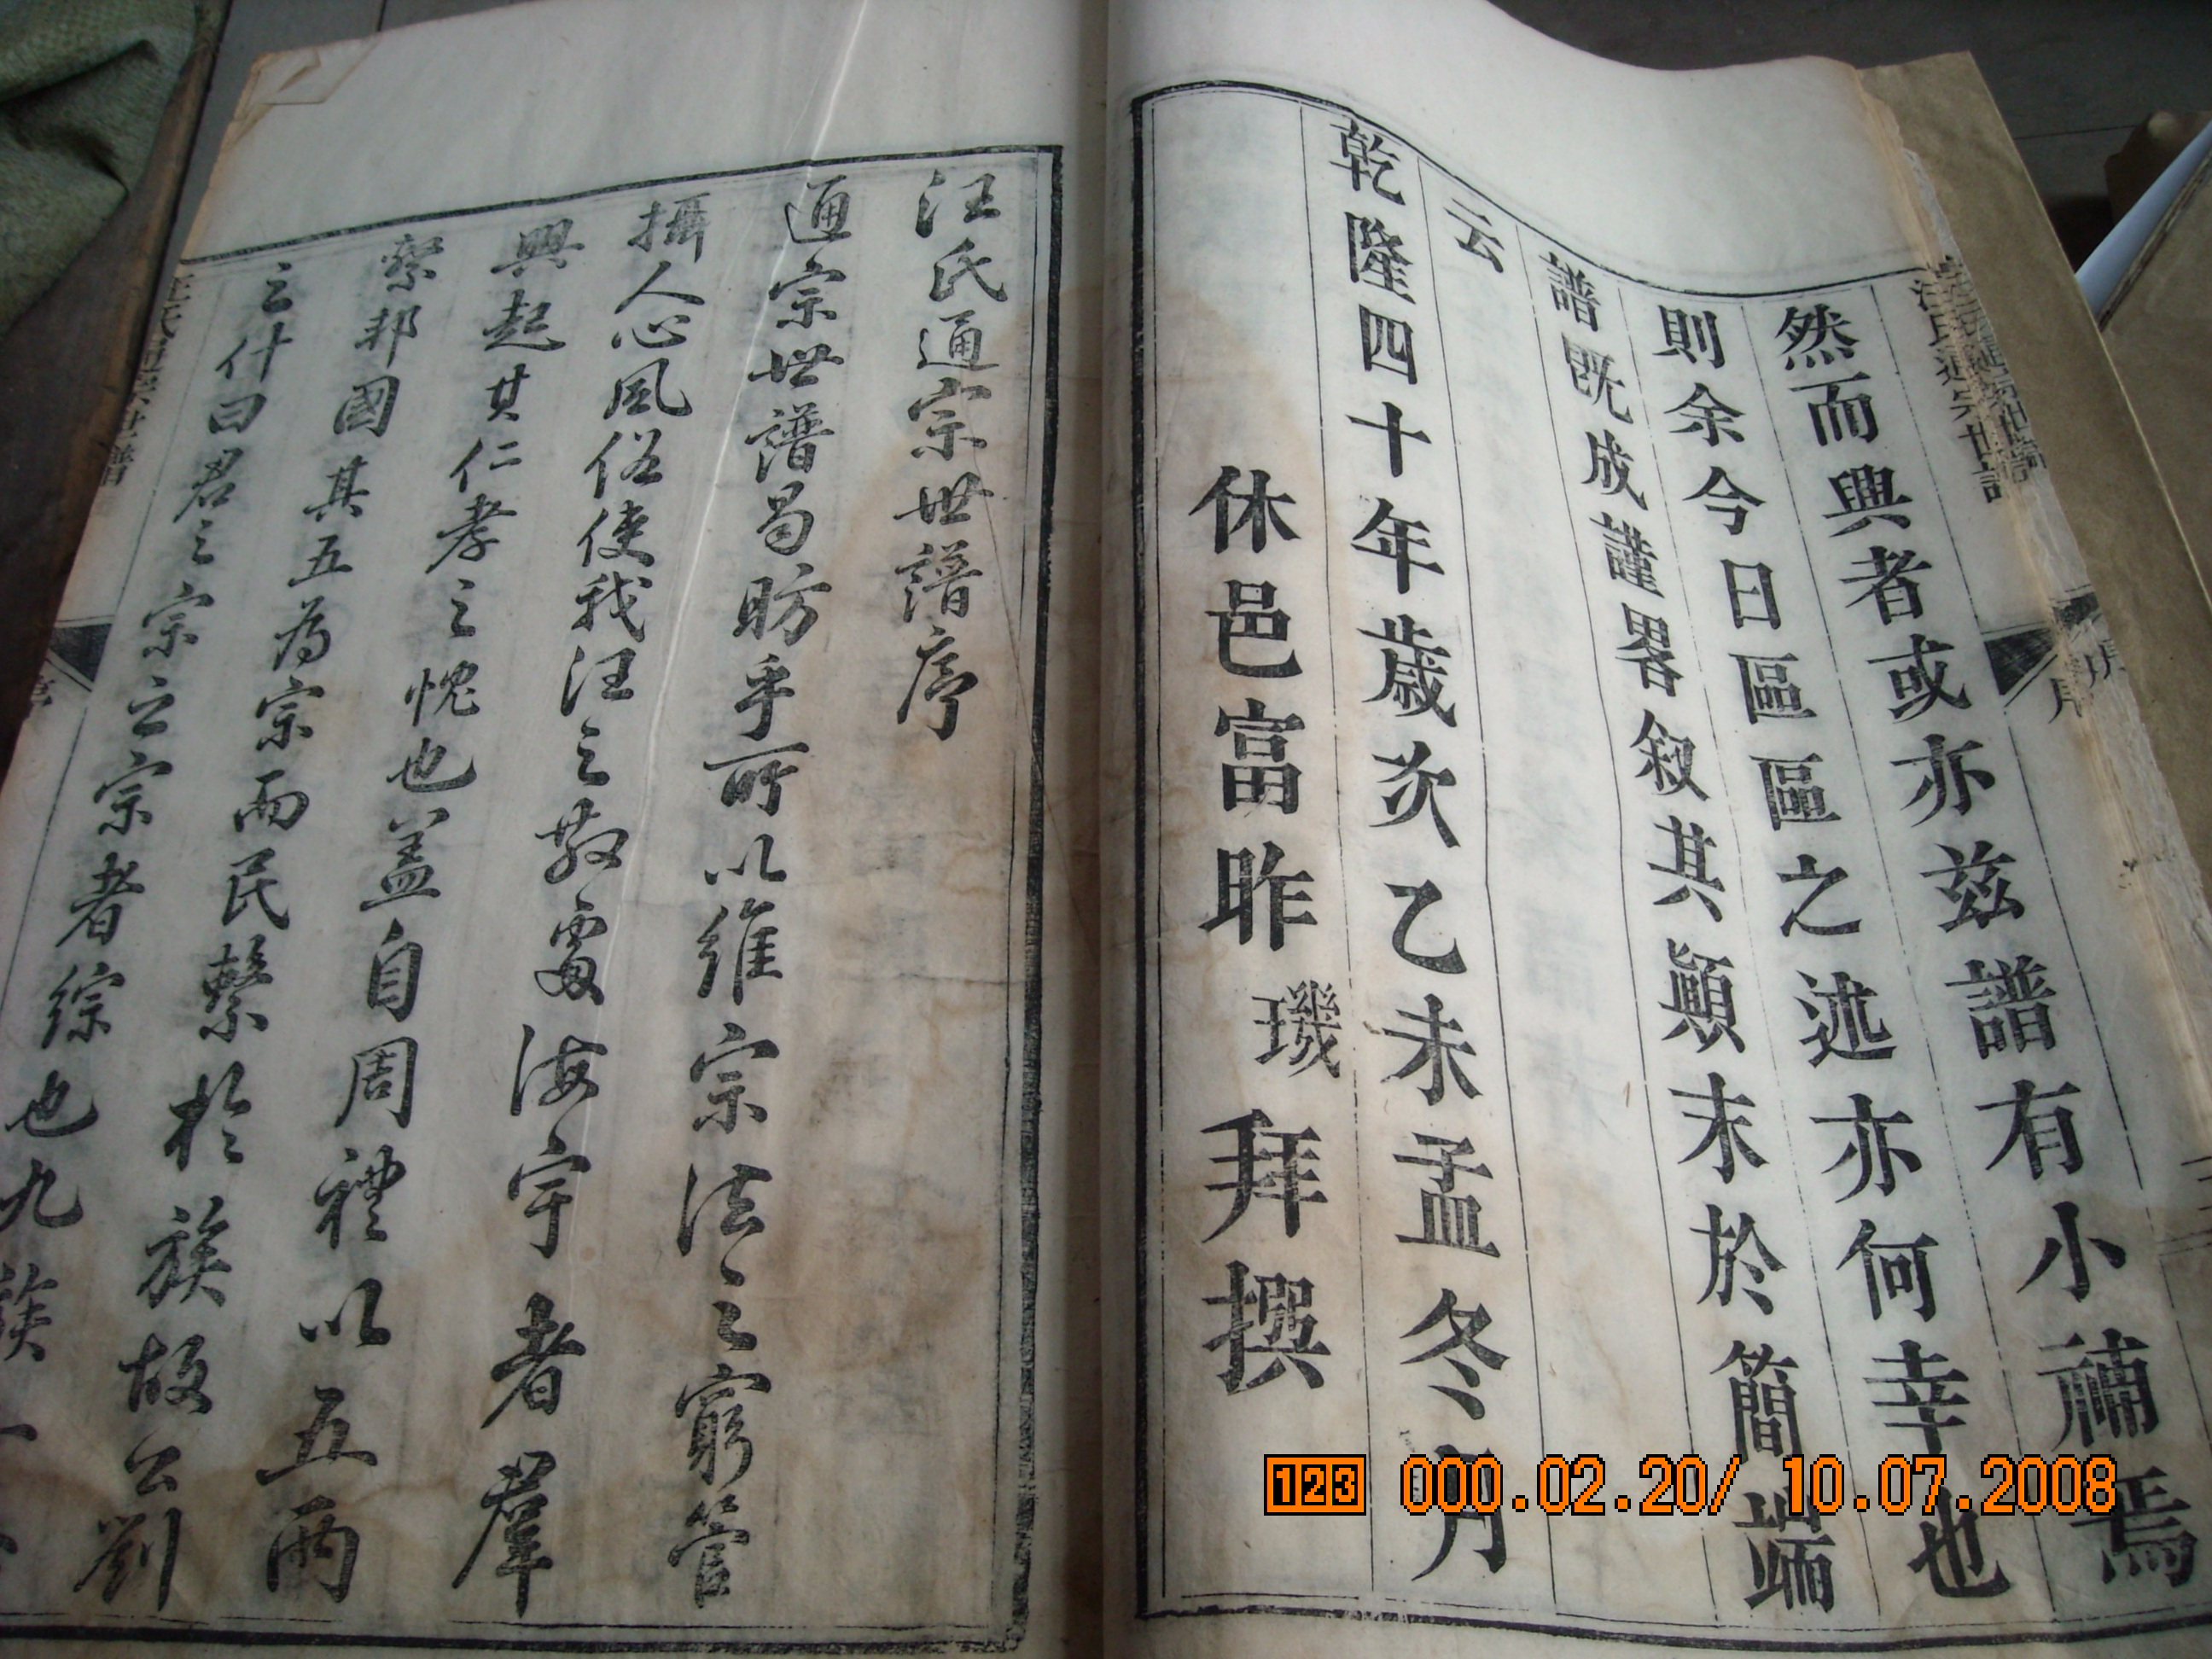 然而興者或亦兹譜有小補焉
則余今日區區之述亦何幸也
譜既成謹畧叙其顛末於簡端
云
乾隆四十年歲次乙未孟冬月
休邑富昨璣拜撰
汪氏通宗世譜序
通宗世譜曷昉乎所以維宗法之窮管
攝人心風俗使我汪之散處海宇者羣
興起其仁孝之愧也蓋自周禮以五兩
繫邦國其五為宗而民繫於族故公劉
之什曰君之宗之宗者綜也九族
汪氏通宗世譜
序
123 000.02.20/ 10.07.2008